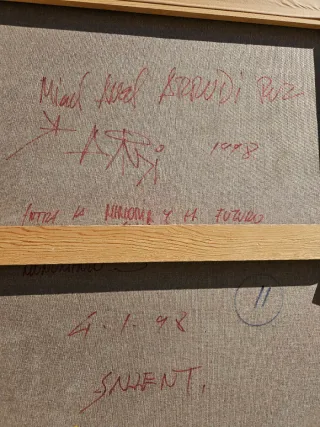 Miguel Angel ARRUDI RUIZ
1998
ENTRE LA MEMORIA Y EL FUTURO
11
4.1.98
SALLENT.